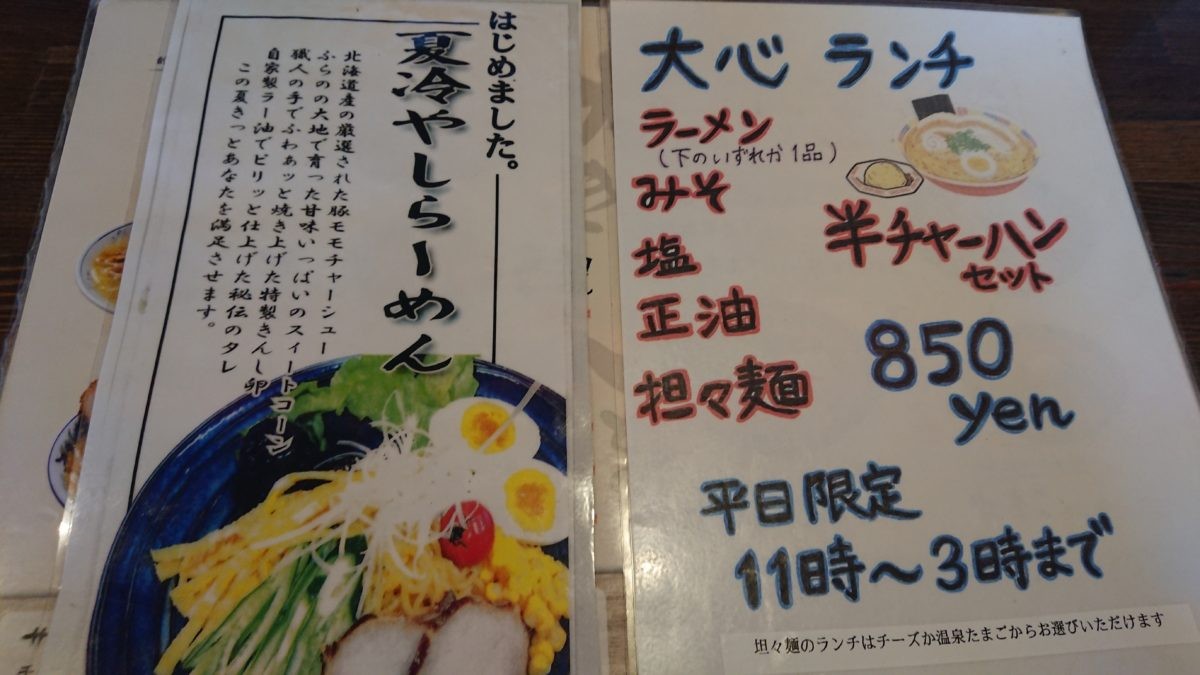 はじめました。
夏冷やしらーめん
北海道産の厳選された豚モモチャーシュー
ふらのの大地で育った甘味いっぱいのスィートコーン
職人の手でふわぁッと焼き上げた特製きんし卵
自家製ラー油でピリッと仕上げた秘伝のタレ
この夏きっとあなたを満足させます。
大心 ランチ
ラーメン
(下のいずれか1品)
みそ
塩
正油
担々麺
半チャーハン
セット
850
yen
平日限定
11時〜3時まで
坦々麺のランチはチーズか温泉たまごからお選びいただけます